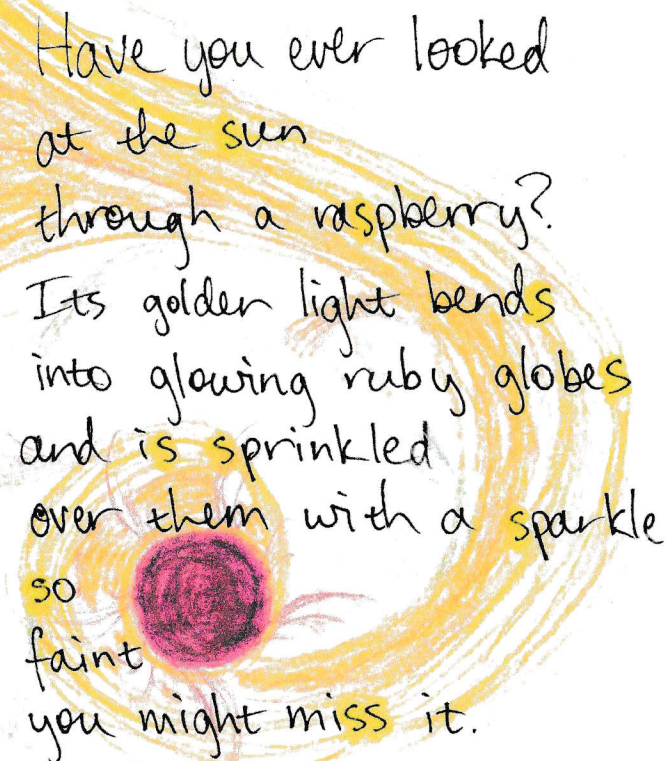 Have you ever looked
at the sun
through a raspberry?
Its golden light bends
into glowing ruby globes
and is sprinkled
over them with a sparkle
so
faint
you might miss it.